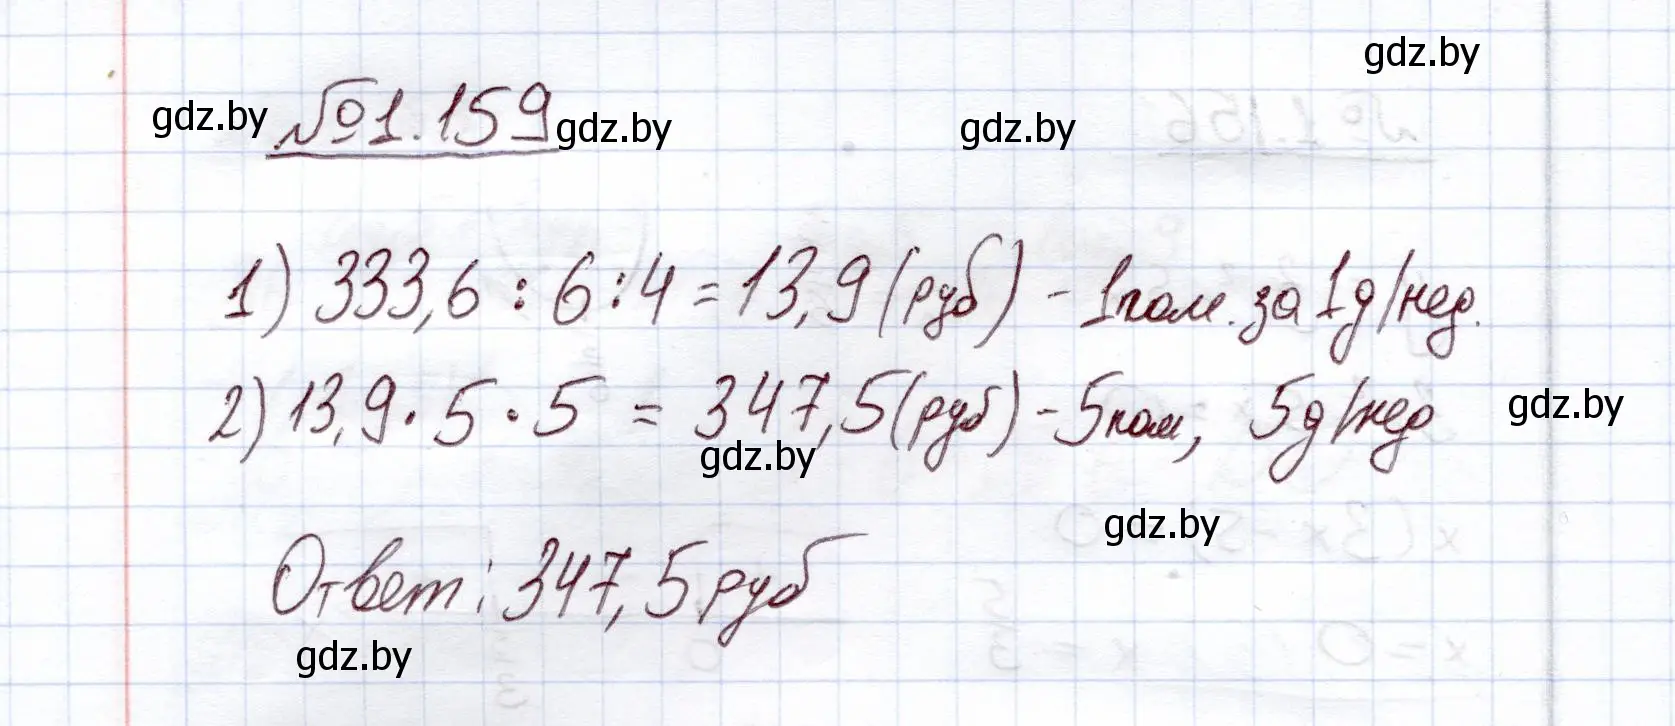 gdz.by
gdz.by №1.159 gdz.by gdz.by
1) 333,6 : 6 : 4 = 13,9 (руб) - 1 пом. за 1 д/нед.
2) 13,9 · 5 · 5 = 347,5 (руб) - 5 пом, 5 д/нед
gdz.by
gdz.by
gdz.by
Ответ: 347,5 руб
gdz.by